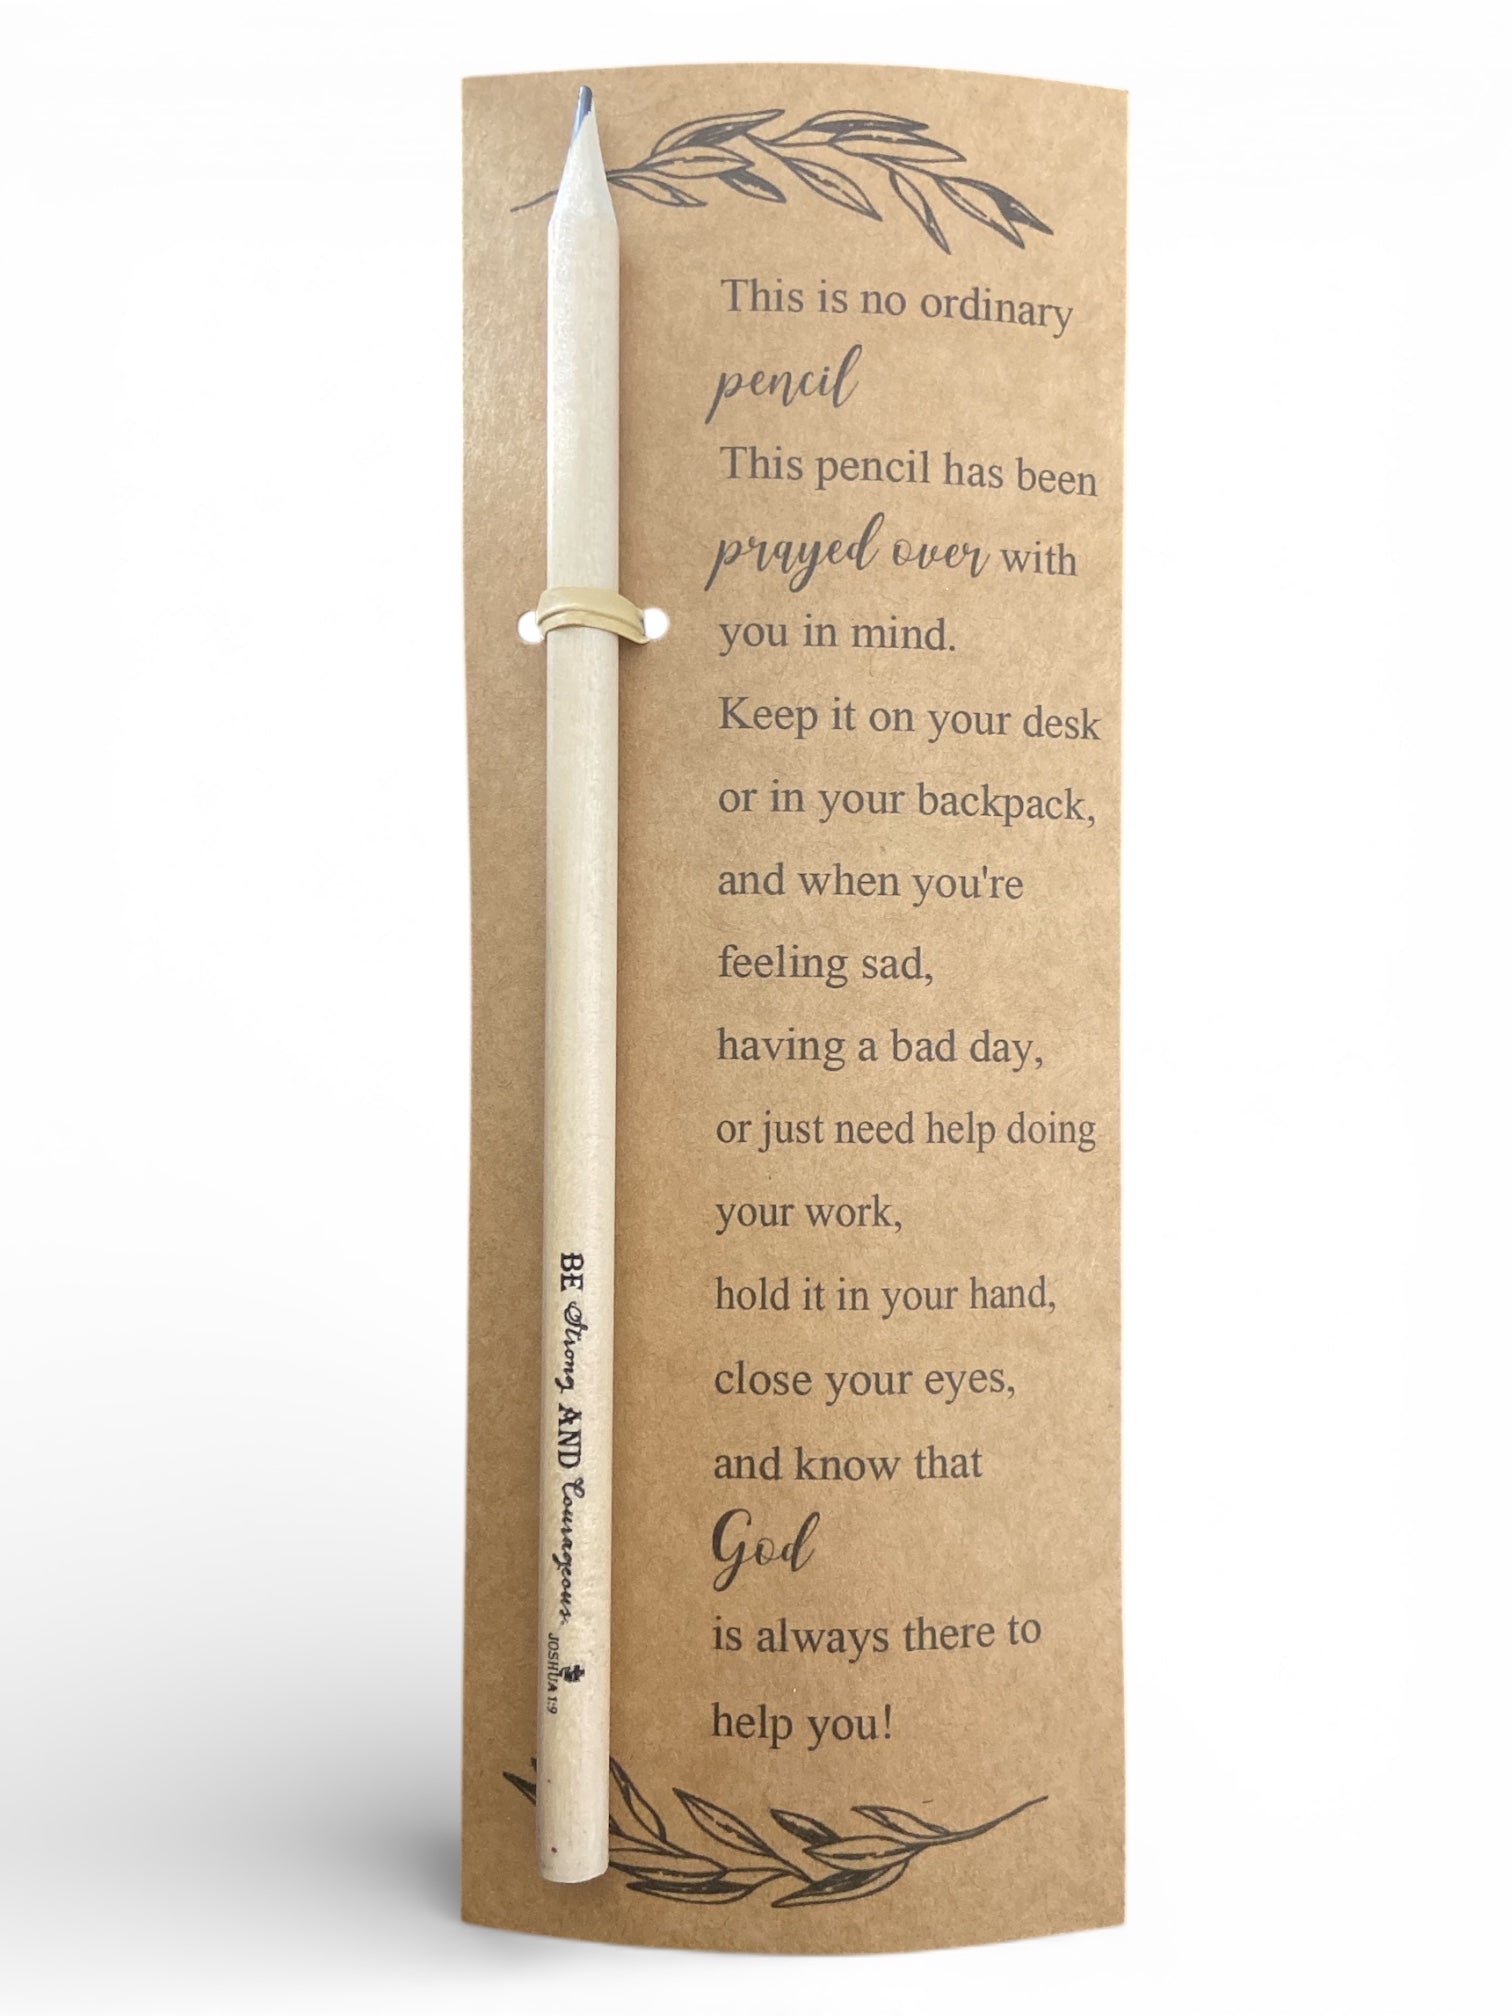 This is no ordinary
pencil
This pencil has been
prayed over with
you in mind.
Keep it on your desk
or in your backpack,
and when you're
feeling sad,
having a bad day,
or just need help doing
your work,
hold it in your hand,
close your eyes,
and know that
God
is always there to
help you!
BE Strong AND Courageous
JOSHUA 1:9